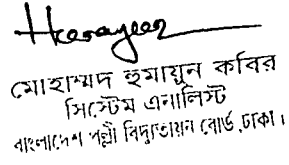 Humayun
মোহাম্মদ হুমায়ুন কবির
সিস্টেম এনালিস্ট
বাংলাদেশ পল্লী বিদ্যুতায়ন বোর্ড, ঢাকা।